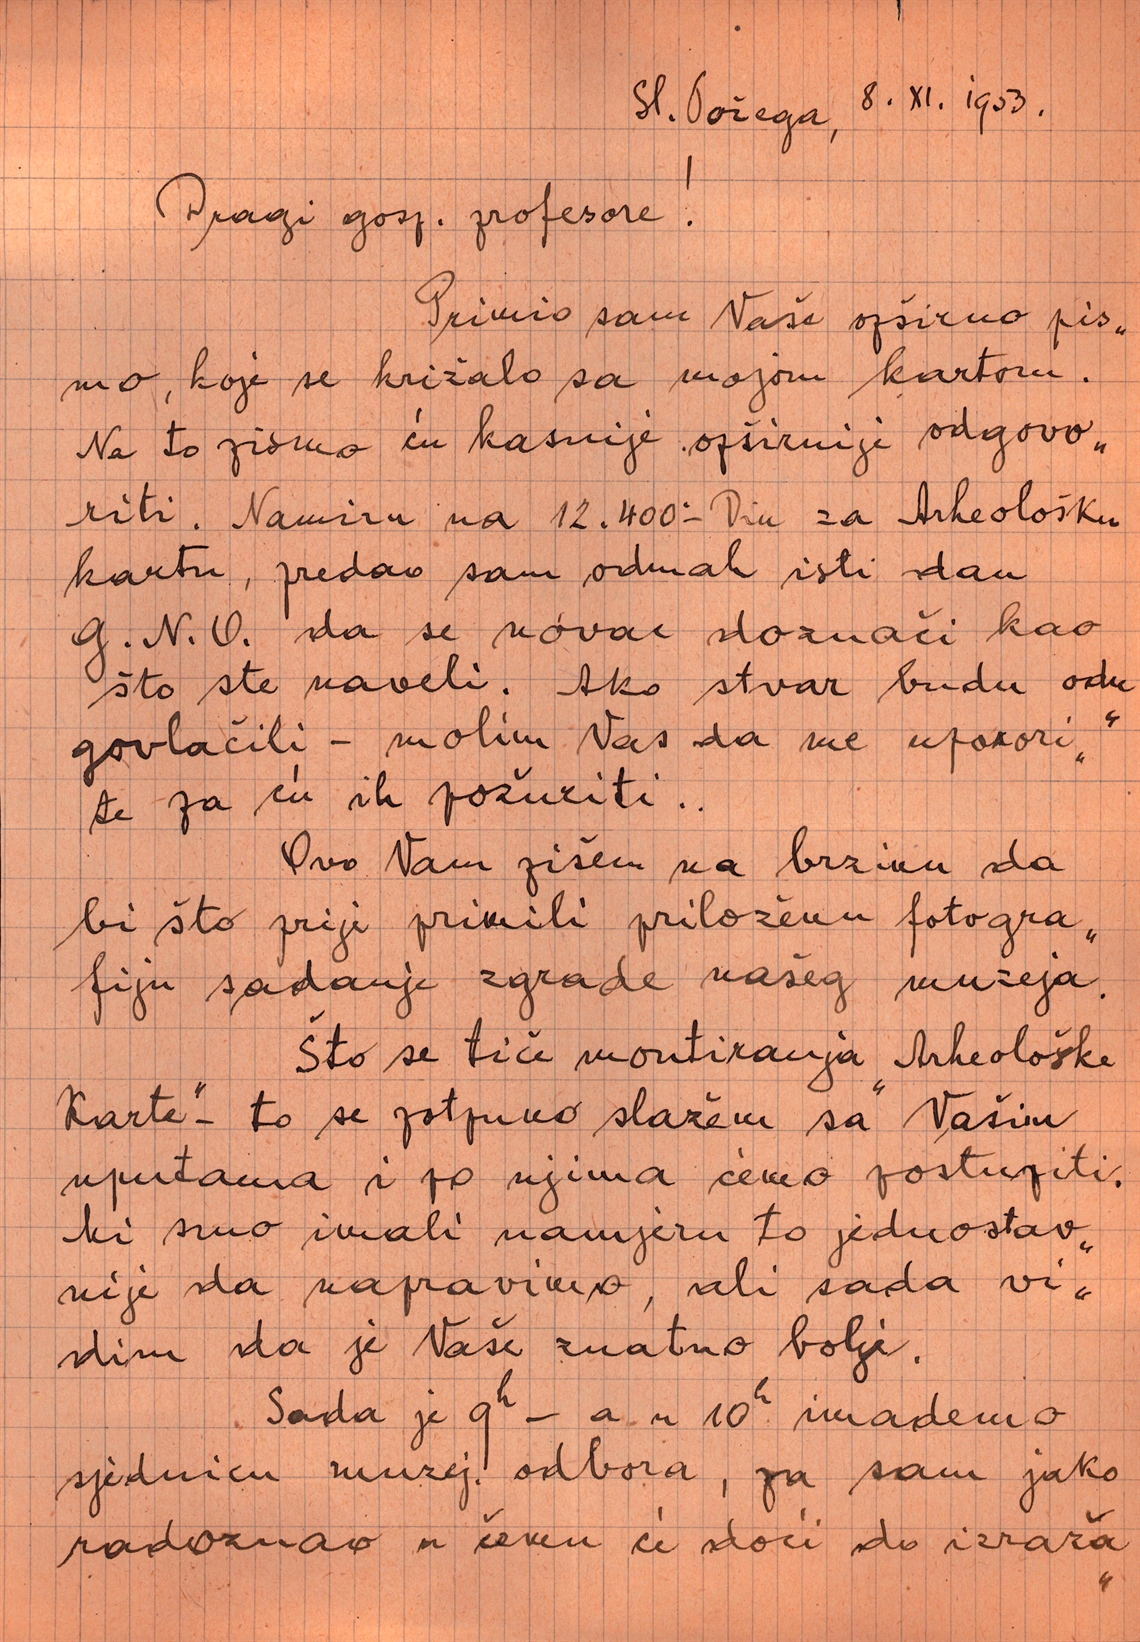 Sl. Požega, 8. XI. 1953.
Dragi gosp. profesore!
Primio sam Vaše opširno pis„
mo, koje se križalo sa mojom kartom.
Na to pismo ću kasnije opširnije odgovo„
riti. Namiru na 12.400.- Din za Arheološku
kartu, predao sam odmah isti dan
G.N.O. da se novac doznači kao
što ste naveli. Ako stvar budu odu„
govlačili - molim Vas da me upozori„
te pa ću ih požuriti..
Ovo Vam pišem na brzinu da
bi što prije primili priloženu fotogra„
fiju sadanje zgrade našeg muzeja.
Što se tiče montiranja „Arheološke
Karte" - to se potpuno slažem sa Vašim
uputama i po njima ćemo postupiti.
Mi smo imali namjeru to jednostav„
nije da napravimo, ali sada vi„
dim da je Vaše znatno bolje.
Sada je 9h - a u 10h imademo
sjednicu muzej. odbora, pa sam jako
radoznao u čemu će doći do izraža„